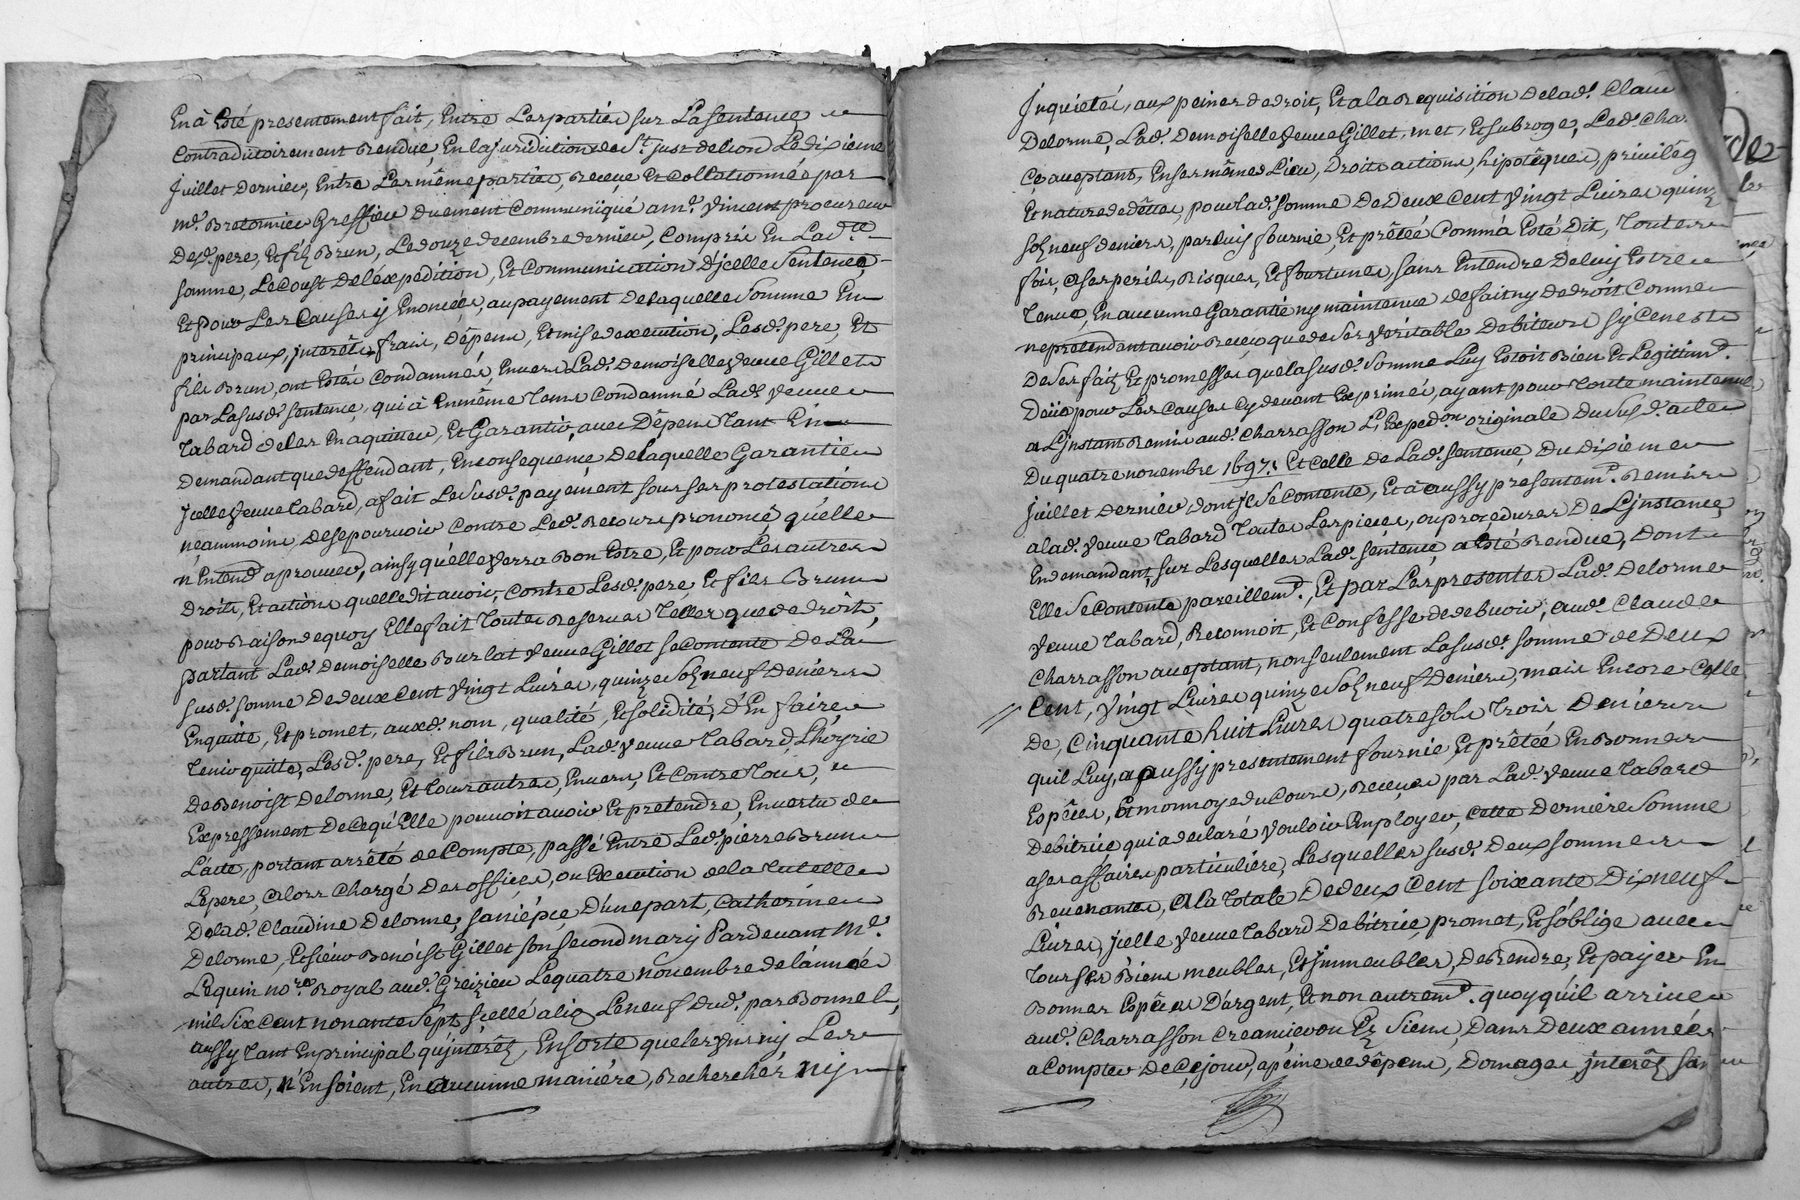 En à Esté presentement fait, Entre Les partiés sur La sentence
Contradictoirement Rendue, En la juridiction de St. just de Lion Le dixieme
Juillet dernier, Entre Les même partiés, Receue Et collationnéé par
me. Bretonnier Greffier Duement Communiqué a me. Vincent procureur
Desd. pere, Et fils Brun, Le douze decembre dernier, Compris En Ladte.
somme, Le coust De L'expedition, Et Communication d'jcelle Sentence,
Et pour Les Causes y Enoncéés, au payement de laquelle Somme En
principeaux, jnterêts, frais, dépens, Et mise dexecution, Lesd. pere, Et
fils Brun, ont Estés Condamnés, Envers Lad. Demoiselle Veuve Gillet
par La susd. sentence, qui à En même Tems Condamné Lad. Veuve
Tabard de les En aquitter, Et Garantir, avec Dépens Tant En
Demandant que deffendant, En consequence De laquelle Garantie
jcelle Veuve Tabard, a fait Le Susd. payement sous ses protestations
néammoins, de se pourvoir Contre Led. Recours prononcé qu'elle
n'Entend aprouver, ainsy qu'elle Verra Bon Estre, Et pour Les autres
Droits, Et actions quelle dit avoir, Contre Lesd. pere, Et fils Brun
pour Raison de quoy Elle fait Toutes Reserves Telles que de droit,
partant Lad. Demoiselle Burlat Veuve Gillet se Contente De La
susd. somme De deux Cent Vingt Livres, quinze Sols neuf Deniers
En quitte, Et promet, auxd. nom, qualité, Et solidité, d'En faire
Tenir quitte, Lesd. pere, Et fils Brun, Lad. Veuve Tabard, L'hoyrie
De Benoist Delorme, Et Tous autres, Envers, Et Contre Tous,
Expressement De ce qu'Elle pouvoit avoir Et pretendre, En vertu de
L'acte, portant arrêté de Compte, passé Entre Led. pierre Brun
Le pere, alors Chargé Des offices, ou Execution de la Tutelle
De lad. Claudine Delorme, sa niépce, D'une part, Catherine
Delorme, Et sieur Benoist Gillet son second mary Pardevant Me.
Lequin nore. Royal aud. Greizieu Le quatre novembre de L'année
mil Six Cent nonante Sept, scellé alig Le neuf dud. par Bonnel,
aussy Tant En principal qu'jnterêts, En sorte que les Uns ny Les
autres, n'En soient, En aucunne maniére, Recherchés, ny
Jnquietés, aux peines de droit, Et a la Requisition De lad. Clau
Delorme, Lad. Demoiselle Veuve Gillet, met, Et subroge, Led. Char
Ce aceptant, En ses mêmes Lieu, Droits actions, hipotêques, privilêg
Et nature de dêttes, pour lad. somme De Deux Cent Vingt Livres quinz
sols neuf deniers, par Luy fournie, Et prêtéé Comm'à Esté Dit, Toutes
fois, a ses perils, Risques, Et fourtunes, sans Entendre De luy Estre
Tenue, En aucunne Garantie ny maintenue de fait ny de droit Comme
ne pretendant avoir Receu que de Ses Veritable Debiteurs sy ce n'est
De Ses faits, Et promesses que la susd. Somme Luy Estoit Bien Et Legittimt.
Deüe pour Les Causes Cy devant Exprimés, ayant pour Toute maintenue
a L'jnstant Remis aud. Charrasson L'Expedon. originale Du susd. acte
Du quatre novembre 1697. Et Celle De Lad. Sentence, Du dixieme
juillet dernier, dont jl Se Contente, Et à aussy presentemt. Remis
a lad. Veuve Tabard Toutes Les pieces, ou procedures De L'jnstance,
En demandant, sur Lesquelles Lad. Sentence, a Esté Rendue, Dont
Elle Se Contente pareillemt., Et par Les presentes Lad. Delorme
Veuve Tabard, Reconnoit, Et Confesse de debvoir, aud. Claude
Charrasson aceptant, non seulement La susd. somme de Deux
Cent, Vingt Livres quinze Sols neuf Deniers, mais Encore Celle
De, Cinquante huit Livres quatre sols Trois Deniers
quil Luy, a aussy presentement fournie, Et prêtéé En Bonnes
Espêces, Et monnoye du Cours, Receues par Lad. Veuve Tabard
Debitrice qui a declaré Vouloir Employer, Cette Derniére Somme
a ses affaires particuliére, Lesquelles susd. Deux sommes
Revenantes, a La Totale De deux Cent Soixante Dix neuf
Livres, jcelle Veuve Tabard Debitrice, promet, Et s'oblige avec
Tous Ses Biens meubles, Et jmmeubles, de Rendre, Et payer En
Bonnes Espêces D'argent, Et non autremt. quoy qu'il arrive
aud. Charrasson Creamcier ou Es Siens, Dans Deux années
a Compter De Ce jour, a peine de dêpens, Domages, jnterêts san